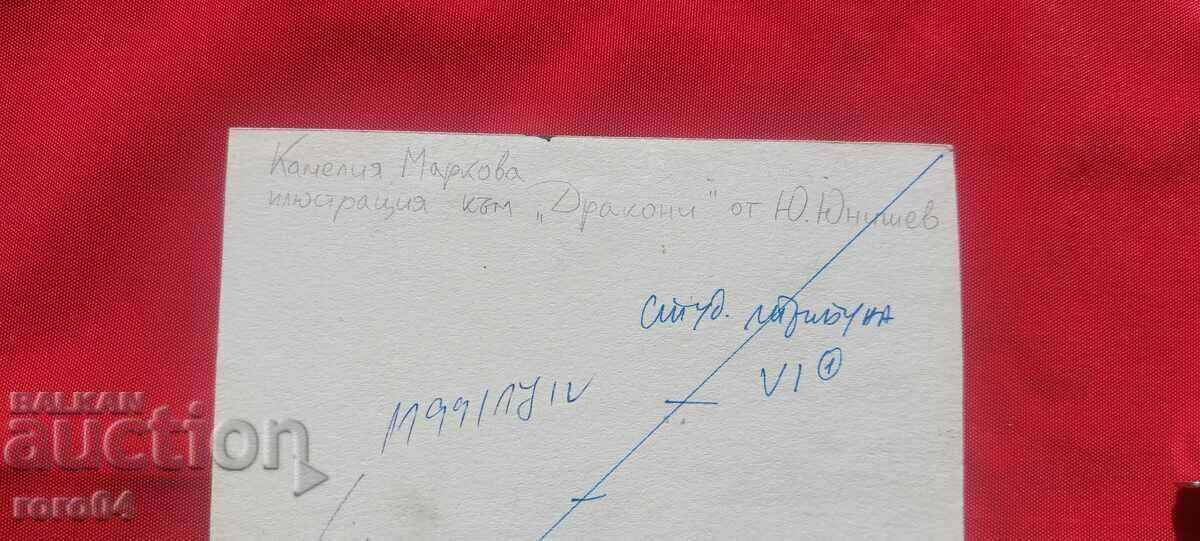 Камелия Маркова
илюстрация към „Дракони" от Ю. Юнишев
студ. трибуна
VI ①
BALKAN
auction
roro64